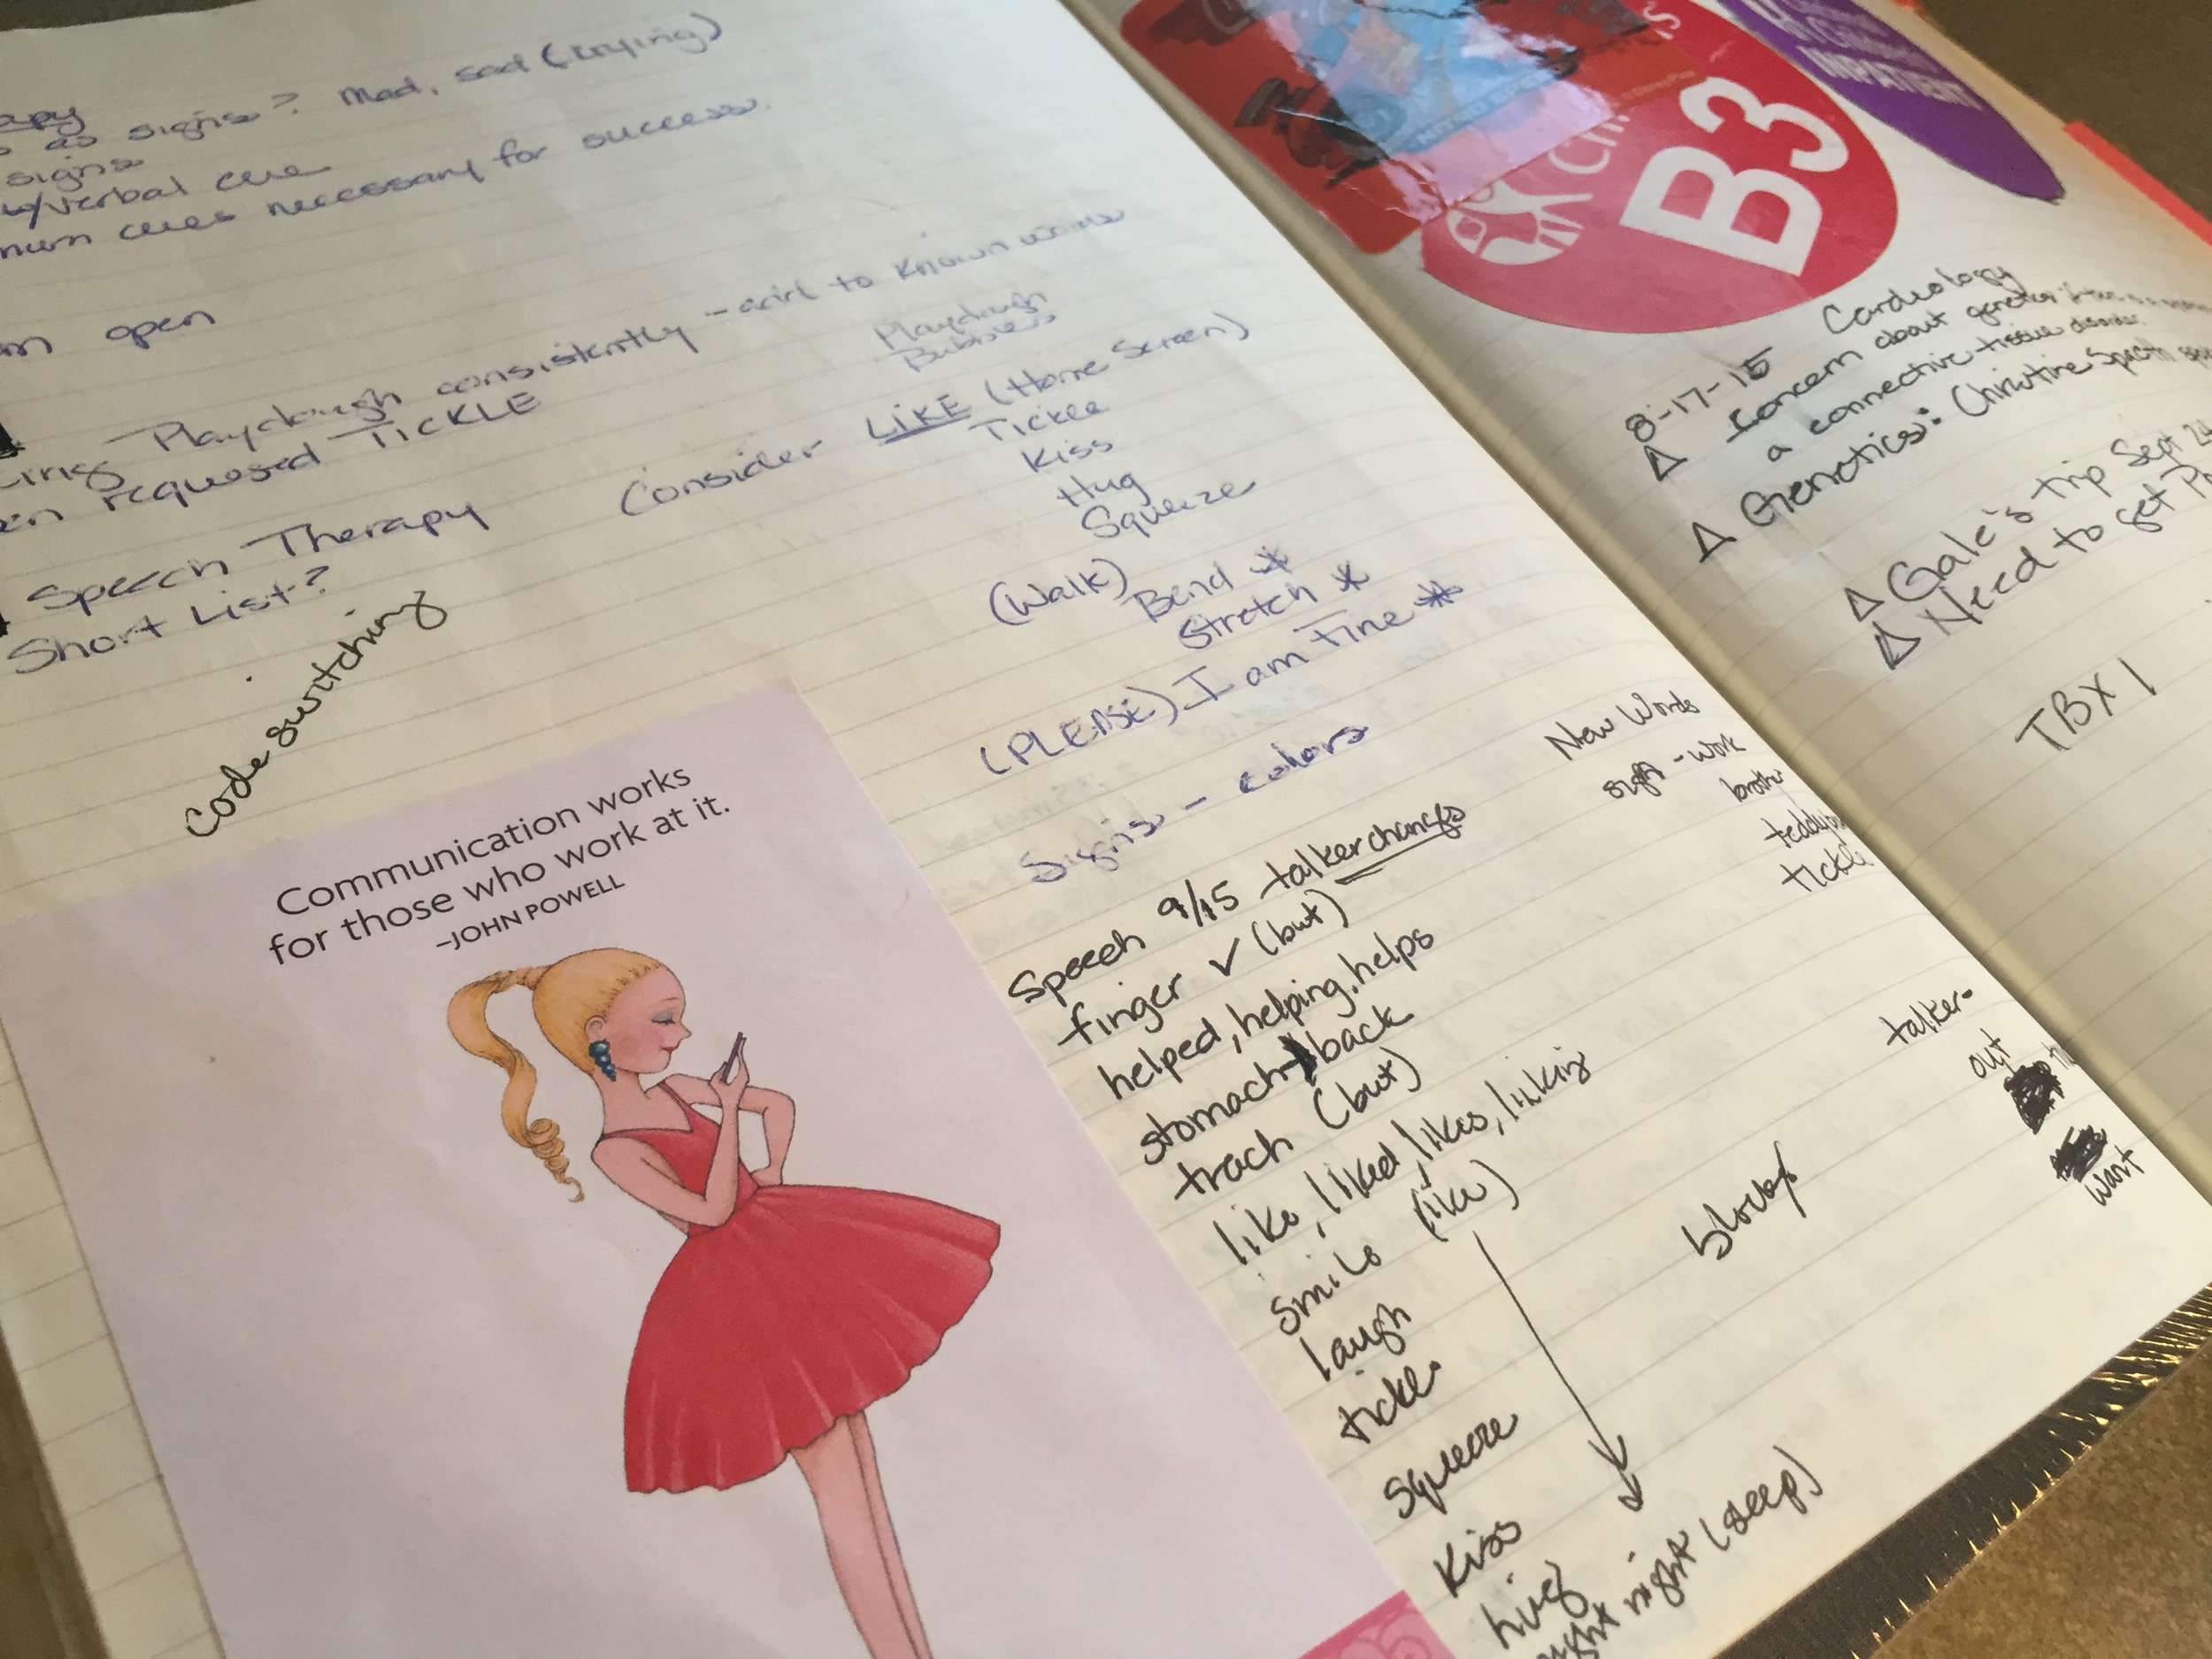 as signs? Mad, sad (crying)
signs
w/verbal cue
cues necessary for success.
open
Playdough consistently - add to known words
requested TICKLE
Playdough
Bubbles
Speech Therapy
Short List?
Consider LIKE (Home Screen)
Tickle
Kiss
Hug
Squeeze
(Walk) Bend *
Stretch *
(PLEASE) I am Fine *
Signs - colors
code switching
Communication works
for those who work at it.
–JOHN POWELL
Speech 9/15 talker changes
finger ✓ (but)
helped, helping, helps
stomach back
trach (but)
like, liked, likes, liking
smile (like)
laugh
tickle
squeeze
Kiss
hug
night (sleep)
New Words
sign - work
brother
tickle
talker-
out
want
B3
INPATIENT
8-17-15 Cardiology
Δ Concern about genetics if
a connective tissue disorder.
Δ Genetics: Christine
Δ Gale's trip Sept 24
Δ Need to get
TBX1